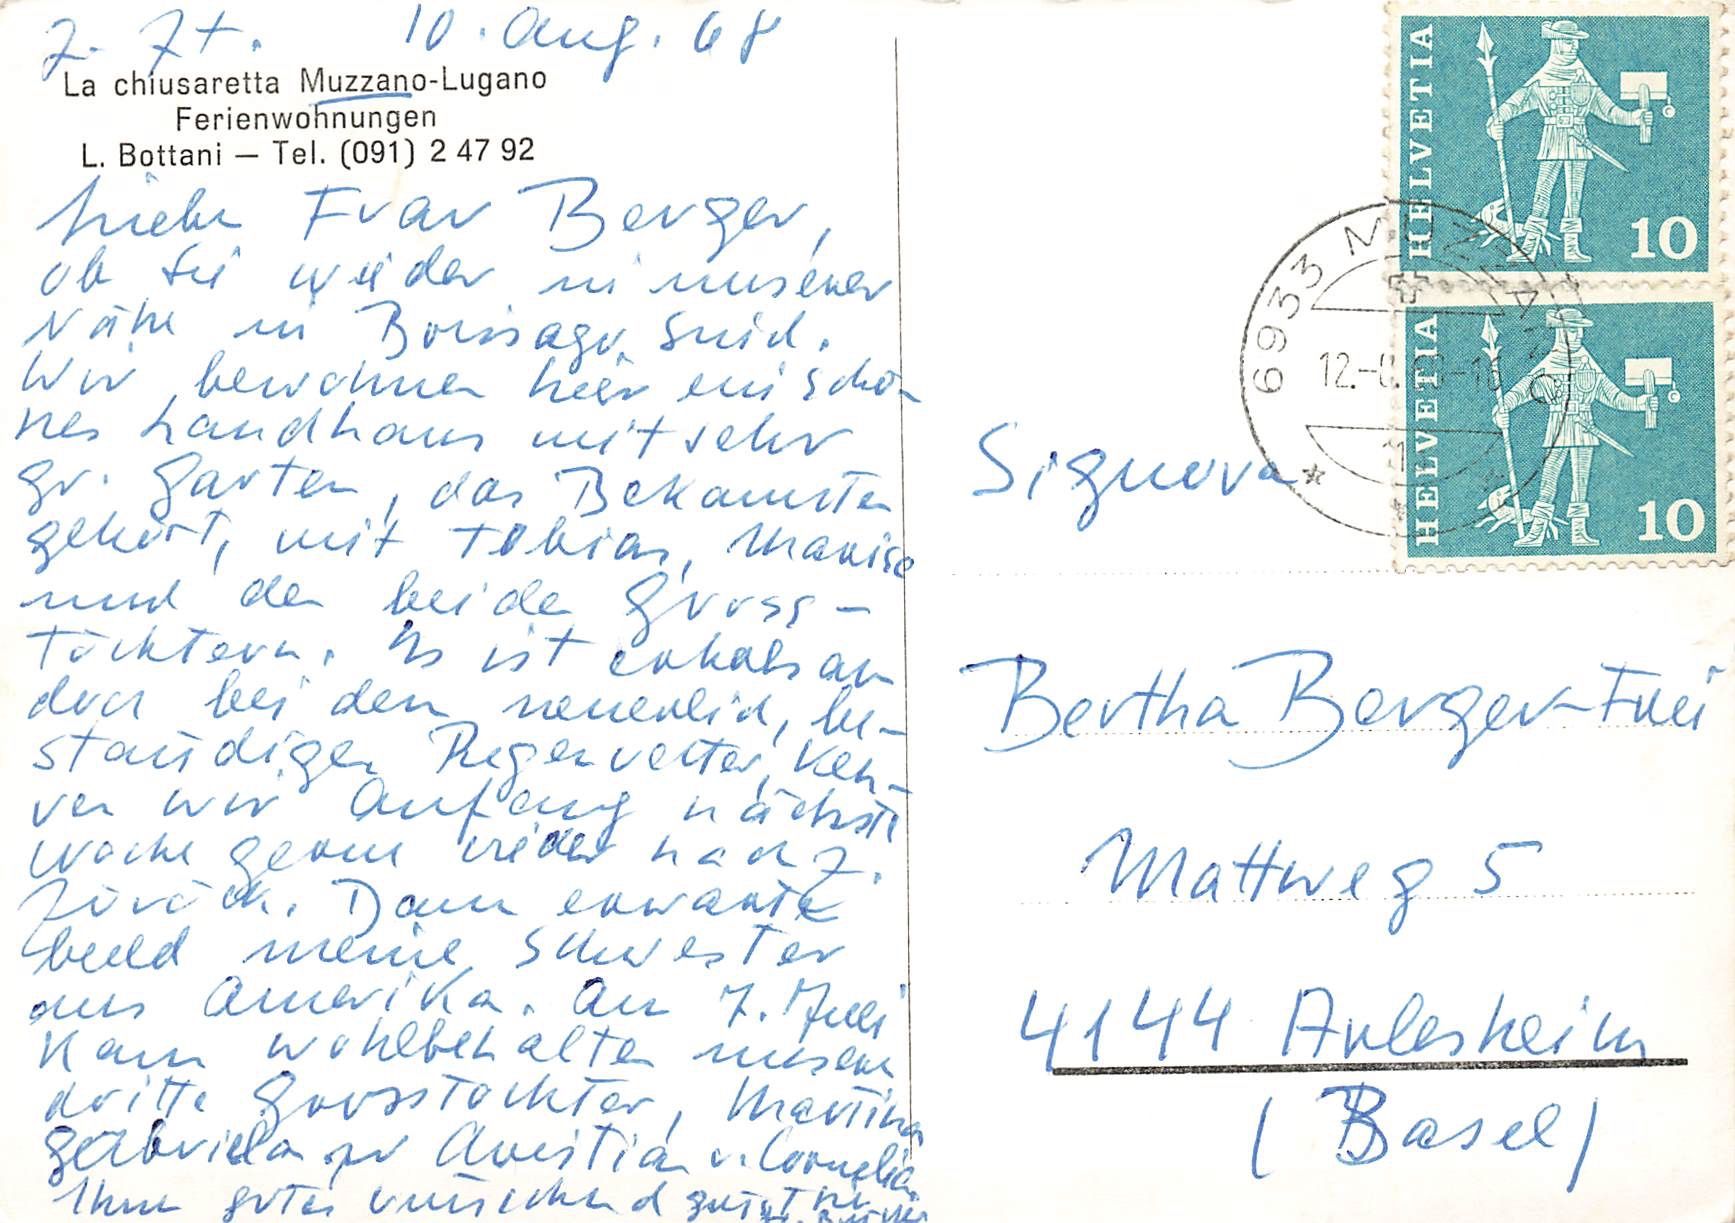 z. Zt. 10. Aug. 68
La chiusaretta Muzzano-Lugano
Ferienwohnungen
L. Bottani — Tel. (091) 2 47 92
Liebe Frau Berger,
ob Sie wieder in unserer
Nähe in Brissago sind.
Wir bewohnen hier ein schö
nes Landhaus mit sehr
gr. Garten, das Bekannten
gehört, mit Tobias, Marise
und den beiden Gross-
töchtern. Es ist erholsam
doch bei dem neuerlich, be-
ständigen Regenwetter, keh-
ren wir Anfang nächste
Woche gerne wieder nach Z.
zurück. Dann erwarte
bald meine Schwester
aus Amerika. Am 7. Juli
kam wohlbehalten unsere
dritte Grosstochter, Martina
Gabriela zu Christian u. Cornelia
Ihnen gutes wünschend grüsst
HELVETIA 10
HELVETIA 10
6933 MUZZANO
12.-
Signora
Bertha Berger-Frei
Mattweg 5
4144 Arlesheim
(Basel)